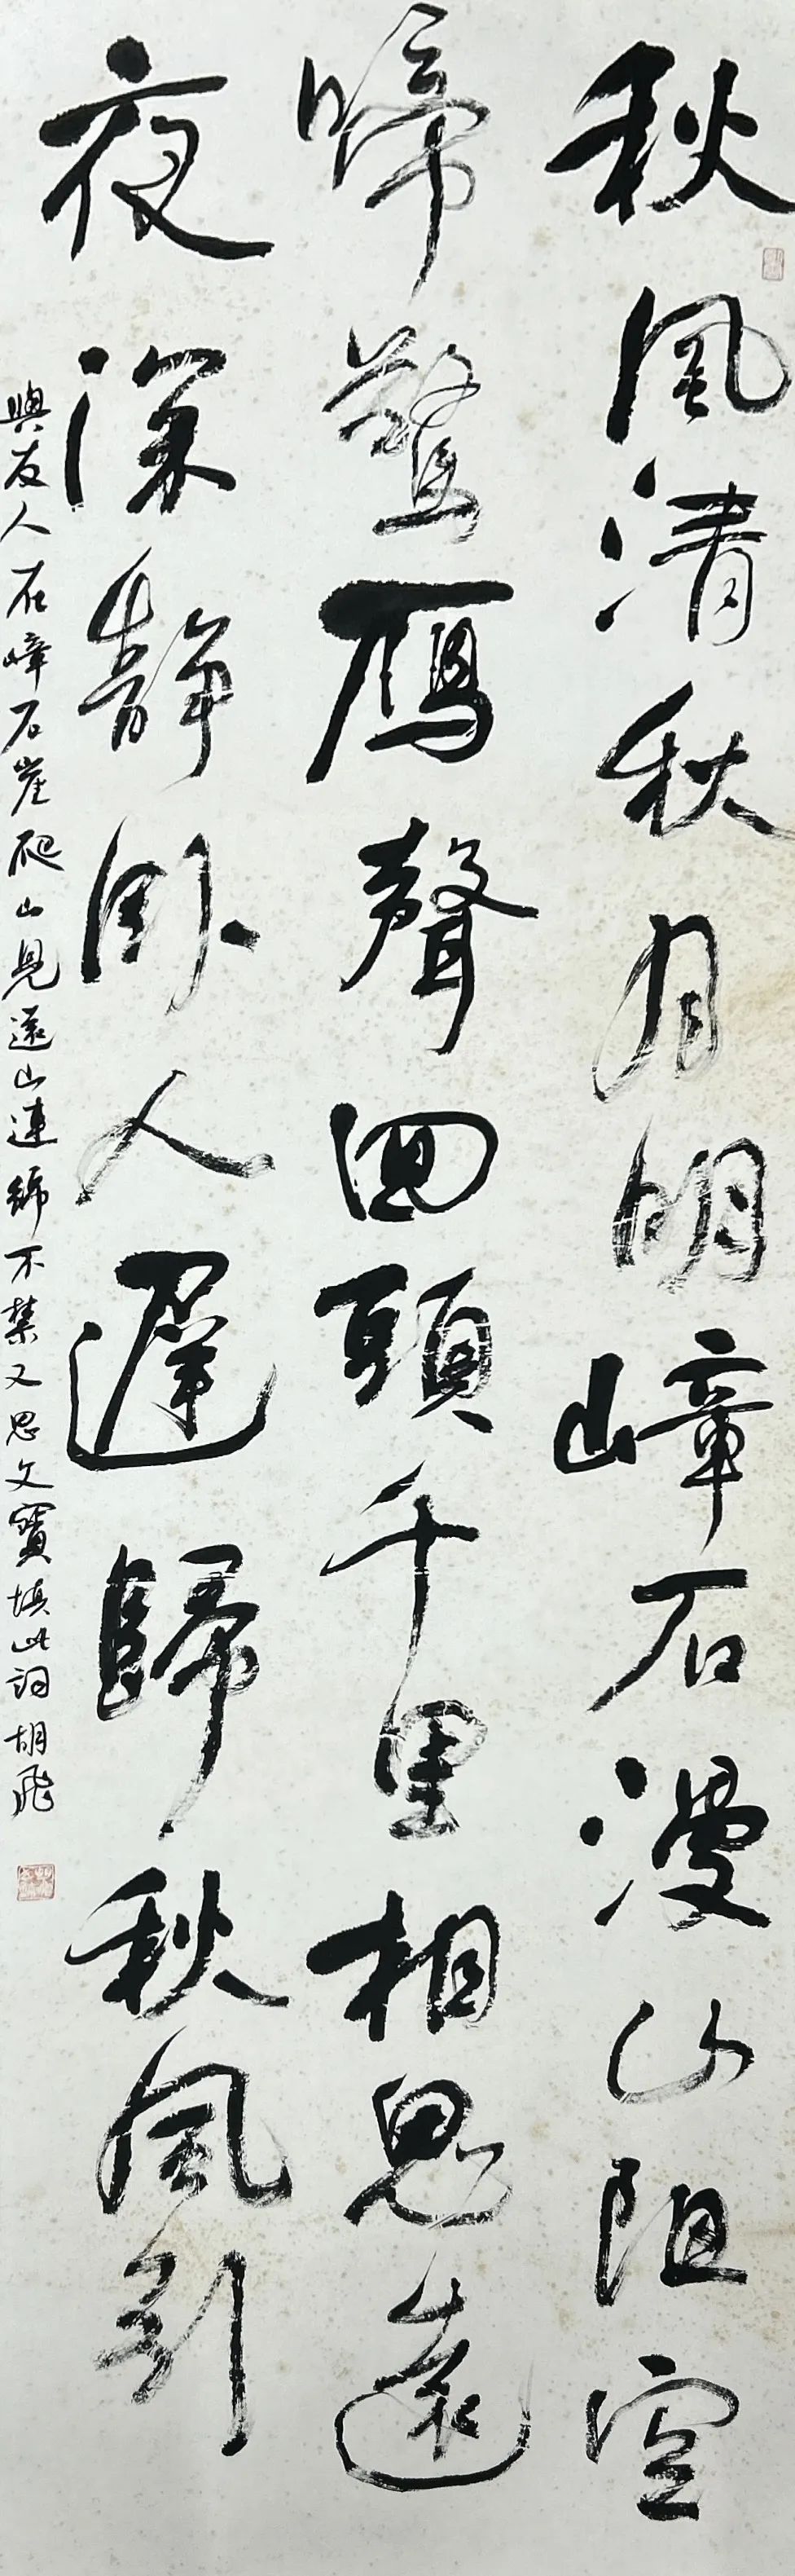 秋風清秋月明嶂石漫山阻空
啼驚雁聲回頭千里相思遠
夜深靜臥人遲歸秋風引
與友人在嶂石崖爬山見遠山連綿不禁又思文寶填此詞胡飛